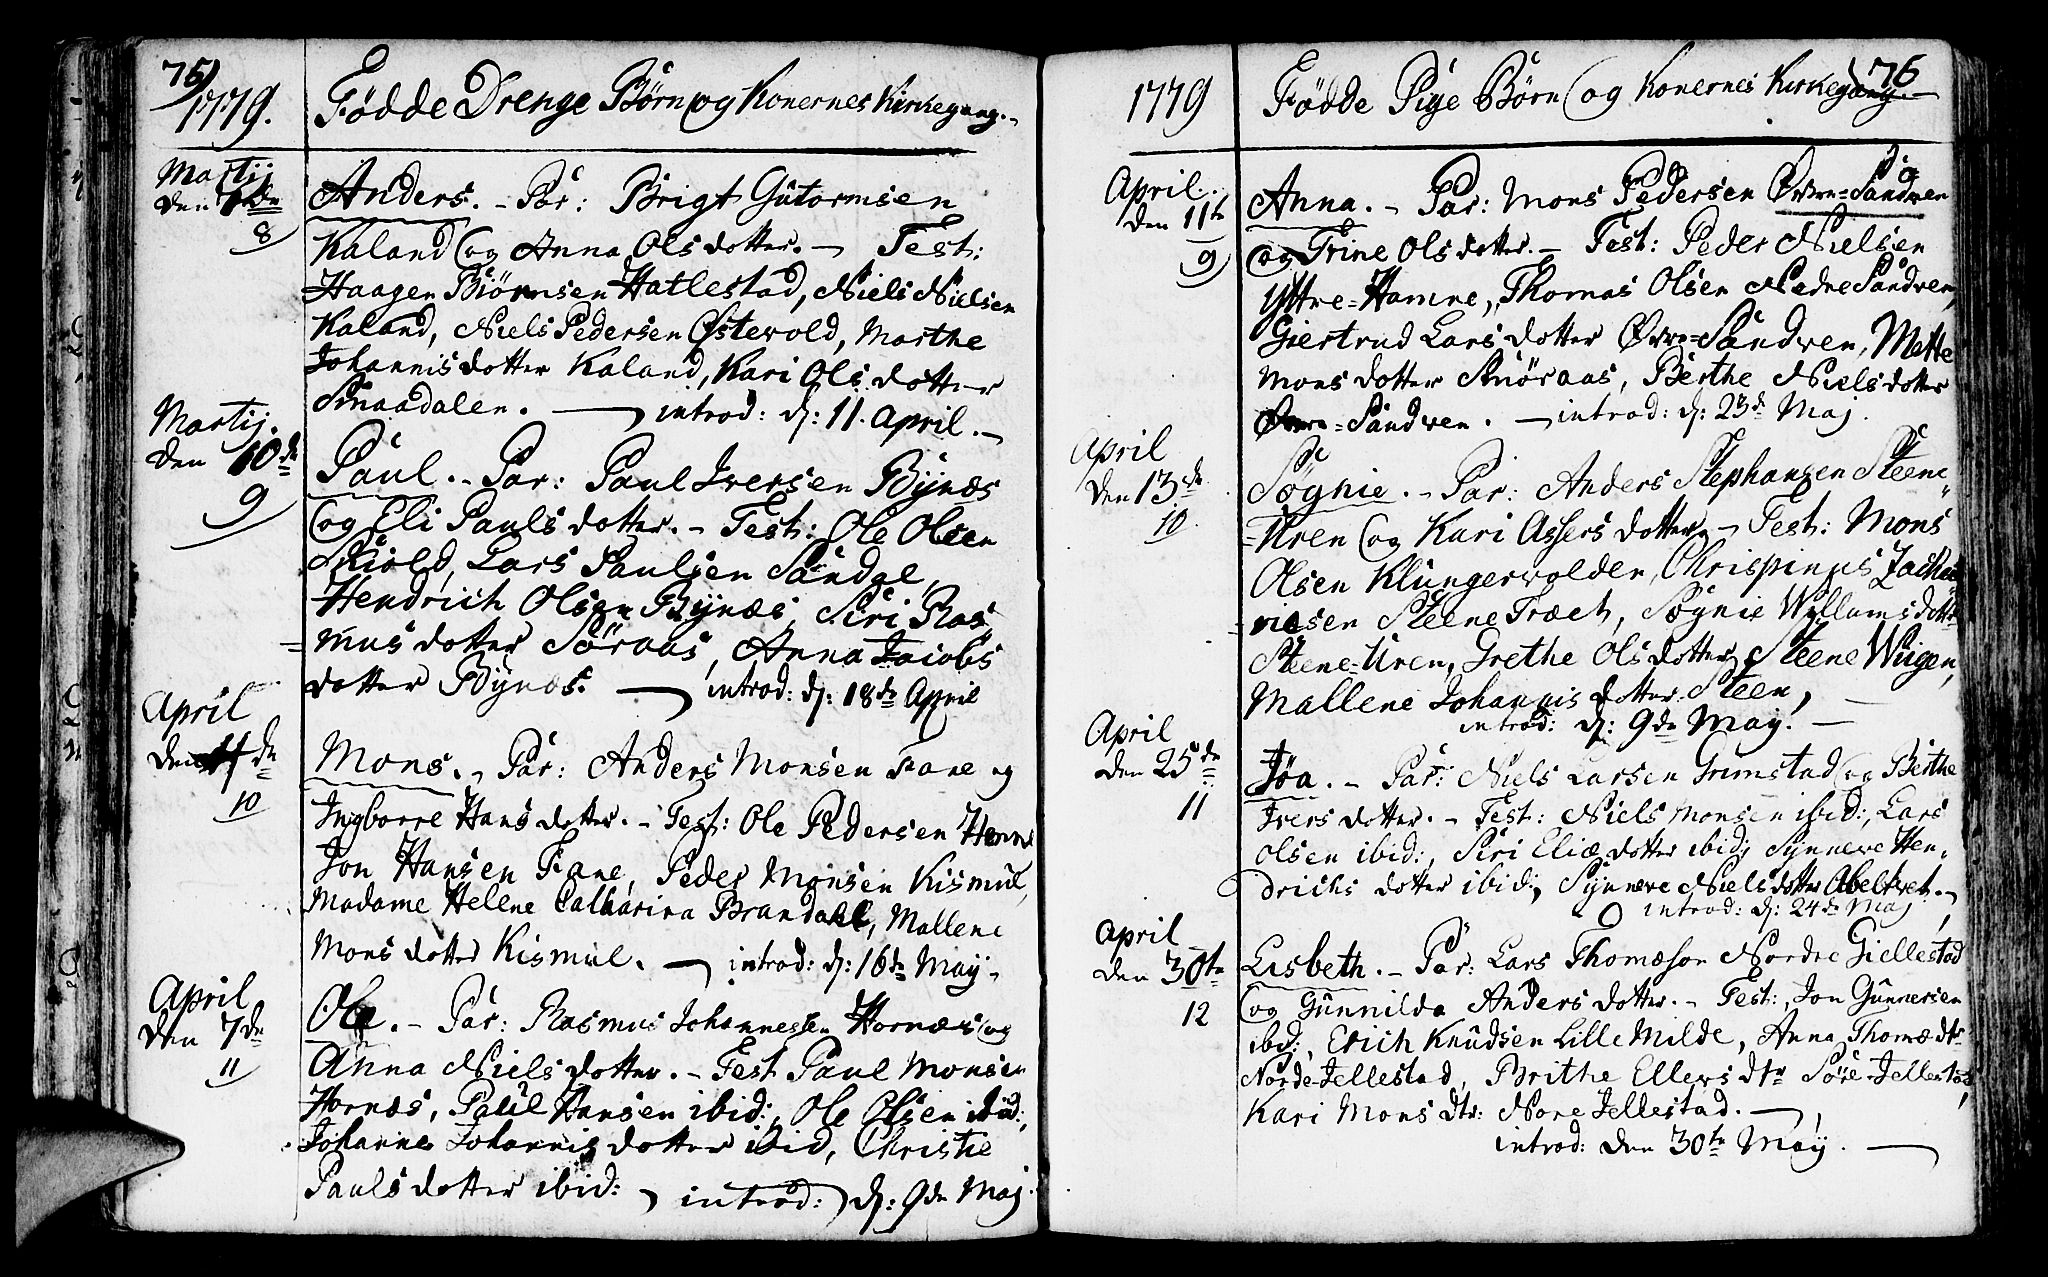 75
1779. Födde Drenge Börn og Konernes Kirkegang.
Martij
den de
8
Anders. - Par: Brigt Gutormsen
Kaland og Anna Olsdotter. - Test:
Haagen Biörnsen Hatlestad, Niels Nielsen
Kaland, Niels Pedersen Østevold, Marthe
Johannisdotter Kaland, Kari Olsdotter
Smaadalen. - introd: d: 11. April. -
Martij.
den 10de
9
Paul. - Par: Paul Iversen Bÿnæs
og Eli Paulsdotter. - Test: Ole Olsen
Skiold, Lars Paulsen Sandal,
Hendrich Olsen Bÿnæs, Siri Ras
= mus dotter Söraas, Anna Jacobs
dotter Bÿnæs. - introd: d: 18de April
April
den de
10
Mons. - Par: Anders Monsen Fane og
Ingborre Hansdotter. - Test: Ole Pedersen
Jon Hansen Fane, Peder Monsen Kismul,
Madame Helene Catharina Brandahl, Mallene
Monsdotter Kismul. - introd: d: 16de Maÿ -
April
den 7de
11
Ole. - Par: Rasmus Johannessen Hornæs og
Anna Nielsdotter. - Test Paul Monsen
Hornæs, Paul Hansen ibid:, Ole Olsen ibid:,
Johanne Johannisdotter ibid, Christie
Paulsdotter ibid: introd: d: 9de Maj.
76
1779 Födde Pige Börn og Konernes Kirkegang. -
April
den 11te
9
Anna. - Par: Mons Pedersen Øvre=Sandven
og Trine Olsdotter. - Test: Peder Nielsen
Yttre=Hamre, Thomas Olsen Nedre Sandven,
Giertrud Larsdotter Øvre=Sandven, Mette
Monsdotter Smöraas, Berthe Nielsdotter
Øvre=Sandven. - introd: d: 23de Maj.
April
den 13de
10.
Søgnie. - Par: Anders Stephansen Steene
=Uren og Kari Assersdotter - Test: Mons
Olsen Klungervolden, Chrispinus Zacha
riesen SteeneTræet, Søgnie Wyllumsdotter
Steene=Uren, Grethe Olsdotter Steene Wiigen,
Mallene Johannisdotter Steen,
introd: d: 9de Maÿ. -
April
den 25de
11
Jøa. - Par: Niels Larsen Grimstad og Berthe
Iversdotter. - Test: Niels Monsen ibid:, Lars
Olsen ibid:, Siri Eliædotter ibid; Synneve Hen
drichs dotter ibid:, Synneve Nielsdotter -
introd: d: 24de Maj
April
den 30te
12
Lisbeth. - Par: Lars Thomæson Nordre Giellestad
og Gunnilda Andersdotter. - Test:, Jon Gunnersen
ibid:, Erich Knudsen Lille Milde, Anna Thomædtr
Norde Jellestad, Brithe Ellersdtr Söre Jellestad,
Kari Monsdtr: Nore Jellestad. -
introd: den 30te Maÿ. -